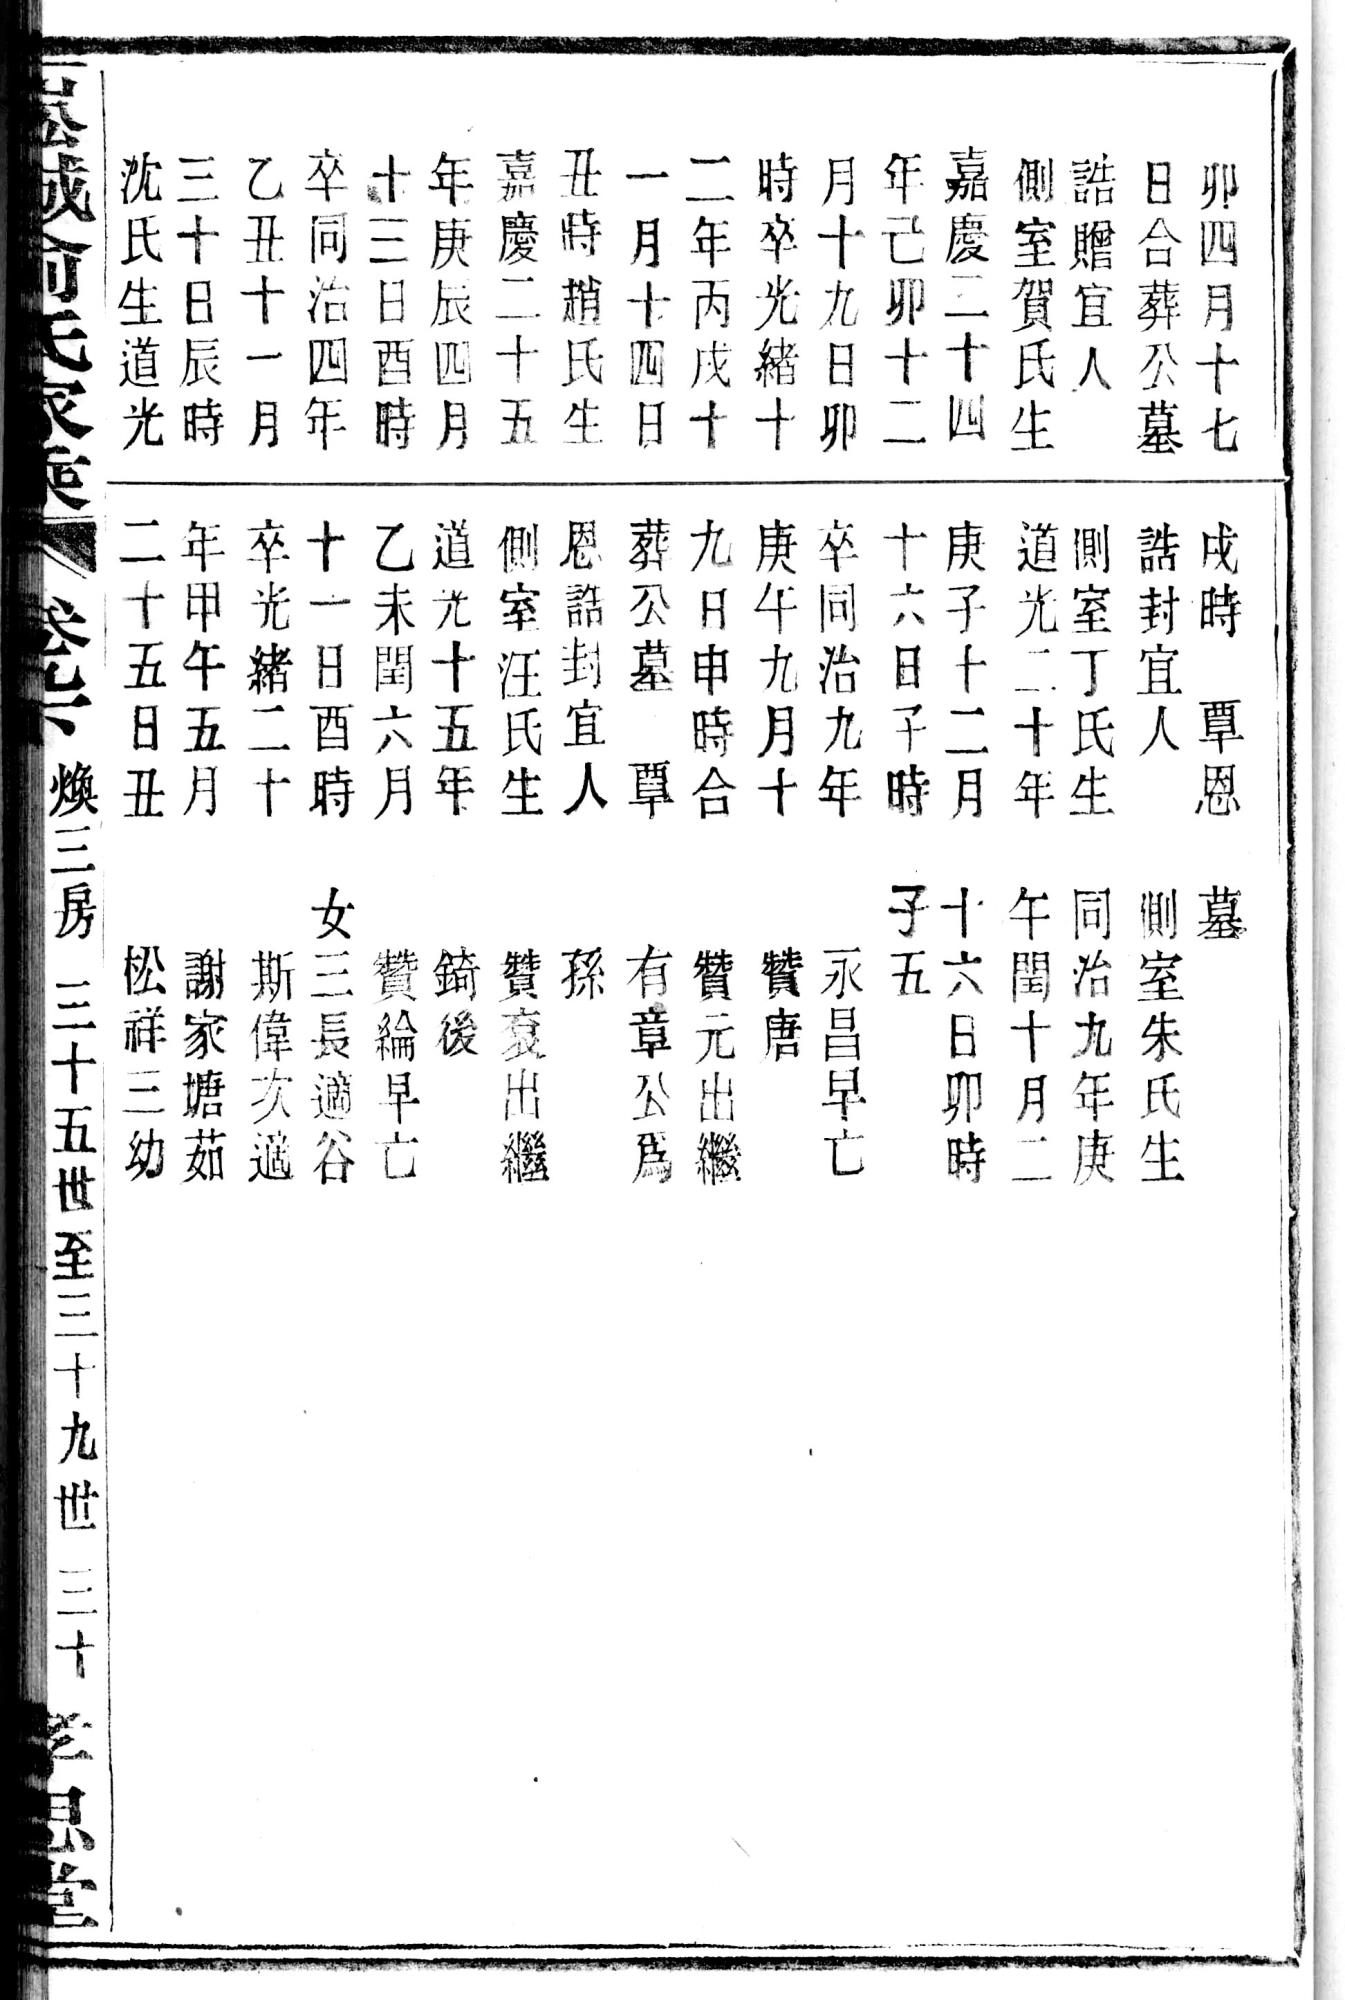 卯四月十七
日合葬公墓
誥贈宜人
側室賀氏生
嘉慶二十四
年己卯十二
月十九日卯
時卒光緒十
二年丙戌十
一月十四日
丑時趙氏生
嘉慶二十五
年庚辰四月
十三日酉時
卒同治四年
乙丑十一月
三十日辰時
沈氏生道光
戌時 覃恩
誥封宜人
側室丁氏生
道光二十年
庚子十二月
十六日子時
卒同治九年
庚午九月十
九日申時合
葬公墓 覃
恩誥封宜人
側室汪氏生
道光十五年
乙未閏六月
十一日酉時
卒光緒二十
年甲午五月
二十五日丑
墓
側室朱氏生
同治九年庚
午閏十月二
十六日卯時
子五
永昌早亡
贊唐
贊元出繼
有章公爲
孫
贊袞出繼
錡後
贊綸早亡
女三長適谷
斯偉次適
謝家塘茹
松祥三幼
城俞氏家乘 卷九下 煥三房 三十五世至三十九世 三十 孝思堂